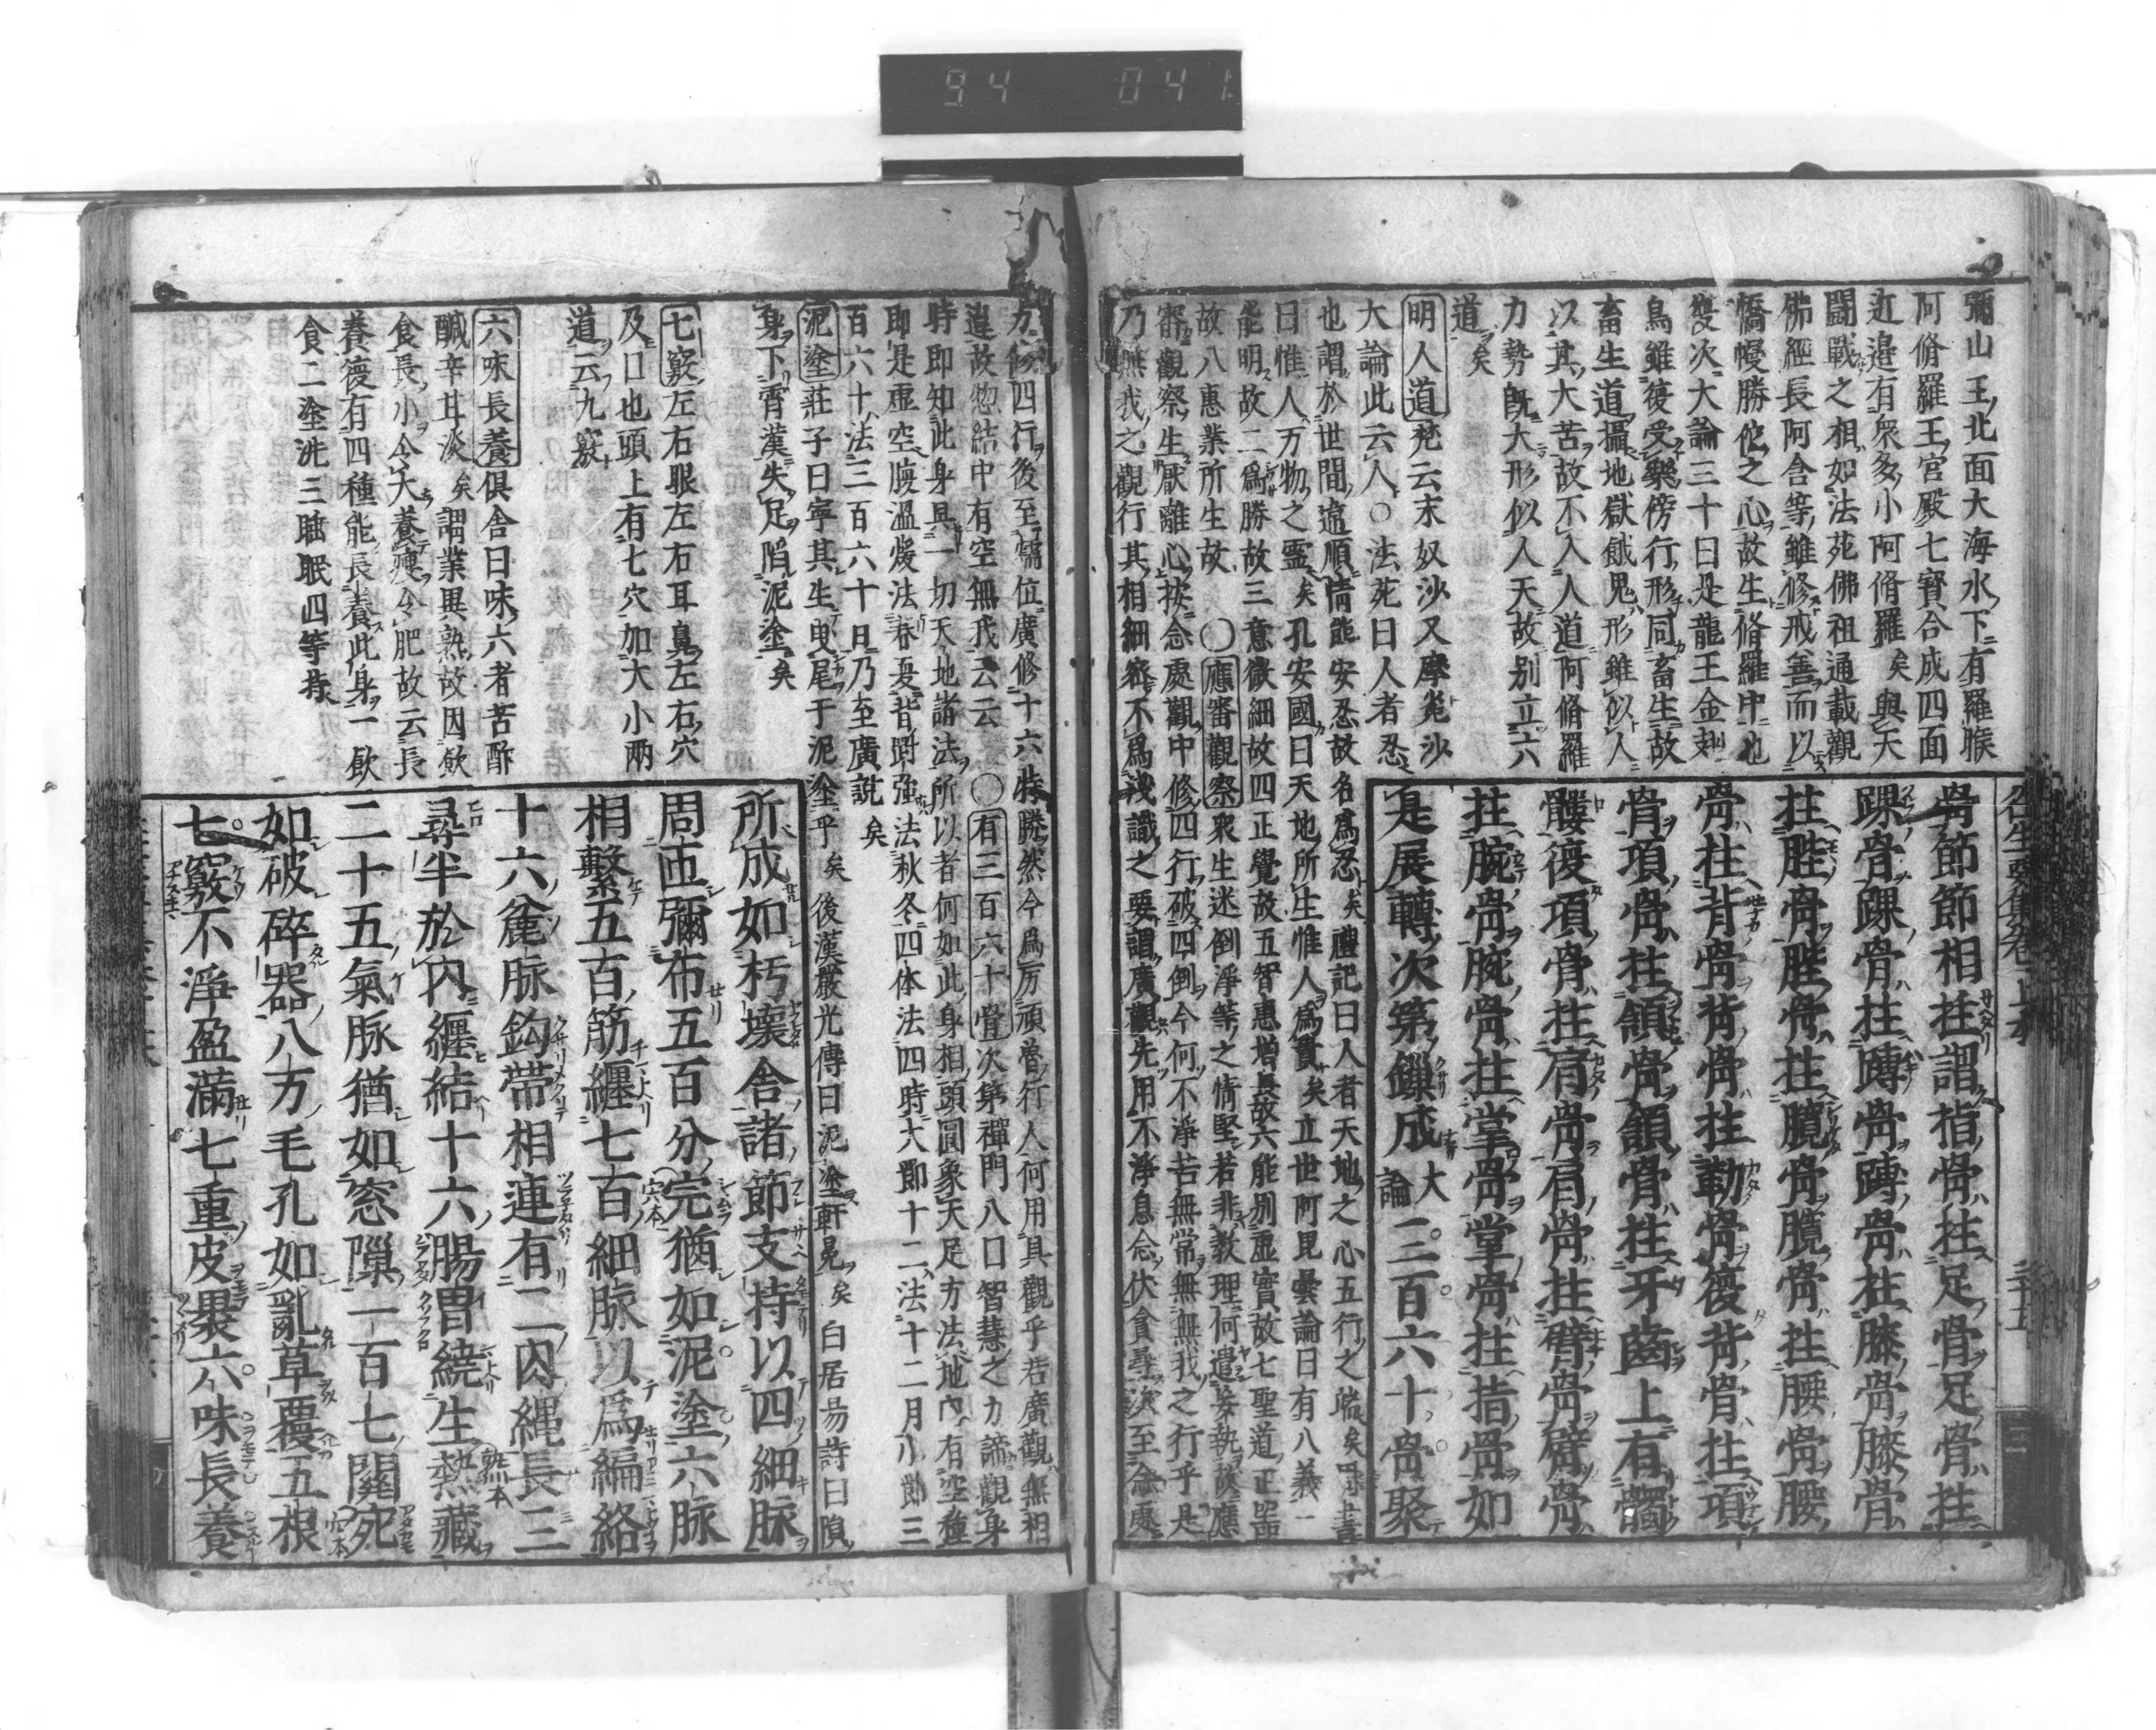 彌山王北面大海水下有羅睺
阿脩羅王宮殿七寶合成四面
近邊有衆多小阿脩羅矣與天
闘戰之相如法苑佛祖通載觀
佛經長阿含等雖修戒善而以
憍慢勝他之心故生脩羅中也
雙次大論三十曰是龍王金翅
鳥雖復受樂傍行形同畜生故
畜生道攝地獄餓鬼形雖似人
以其大苦故不入人道阿脩羅
力勢既大形似人天故別立六
道矣
明人道梵云末奴沙又摩㝹沙
大論此云人○法苑曰人者忍
也謂於世間違順情能安忍故名爲忍矣禮記曰人者天地之心五行之端矣
曰惟人万物之靈矣孔安國曰天地所生惟人爲貴矣立世阿毘曇論曰有八義一
能明故二爲勝故三意微細故四正覺故五智惠增長故六能別虛實故七聖道正器
故八惠業所生故 ○應審觀察衆生迷倒淨等之情堅若非教理何遣妄執故應
審觀察生厭離心挨念處觀中修四行破四倒今何不淨苦無常無我之行乎是
乃無我之觀行其相細密不爲淺識之要謂廣觀先用不淨息念伏貪尋次至念處
骨節節相拄謂指骨拄足骨足骨拄
踝骨踝骨拄䏝骨䏝骨拄膝骨膝骨
拄䏶骨䏶骨拄臗骨臗骨拄腰骨腰
骨拄背骨背骨拄勒骨復背骨拄項
骨項骨拄頷骨頷骨拄牙齒上有髑
髏復項骨拄肩骨肩骨拄臂骨臂骨
拄腕骨腕骨拄掌骨掌骨拄指骨如
是展轉次第鏁成大論三百六十骨聚
方修四行後至燸位廣修十六特勝然今爲厉頑魯行人何用具觀乎若廣觀無相
違故惣結中有空無我云云 ○有三百六十骨次第禪門八曰智慧之力諦觀身
時即知此身具一切天地諸法所以者何如此身相頭圓象天足方法地內有空種
即是虛空腹溫煖法春夏背剛強法秋冬四体法四時大節十二法十二月小節三
百六十法三百六十日乃至廣說矣
泥塗莊子曰寧其生曳尾于泥塗乎矣後漢嚴光傳曰泥塗軒冕矣白居易詩曰隕
身下霄漢失足陷泥塗矣
七竅左右眼左右耳鼻左右穴
及口也頭上有七穴加大小兩
道云九竅
六味長養倶舍曰味六者苦酢
醎辛甘淡矣謂業異熟故因飲
食長小令大養瘦令肥故云長
養復有四種能長養此身一飲
食二塗洗三睡眠四等持
所成如朽壞舎諸節支持以四細脉
周匝彌布五百分宍猶如泥塗六脉
相繫五百筋纏七百細脉以爲編絡
十六麁脉鈎帯相連有二肉縄長三
尋半於內纏結十六腸胃繞生熱藏
二十五氣脉猶如窓隟一百七關宛
如破碎器八万毛孔如亂草覆五根
七竅不淨盈滿七重皮裹六味長養